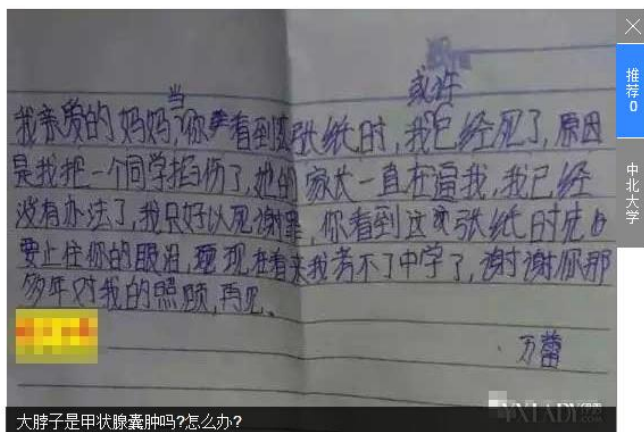 当
或许
我亲爱的妈妈,你看到这张纸时,我已经死了,原因
是我把一个同学掐伤了,她的家长一直在逼我,我已经
没有办法了,我只好以死谢罪,你看到这张纸时先
要止住你的眼泪,现在看来我考不了中学了,谢谢你那
多年对我的照顾,再见。
万蕾
大脖子是甲状腺囊肿吗?怎么办?
推荐0
中北大学